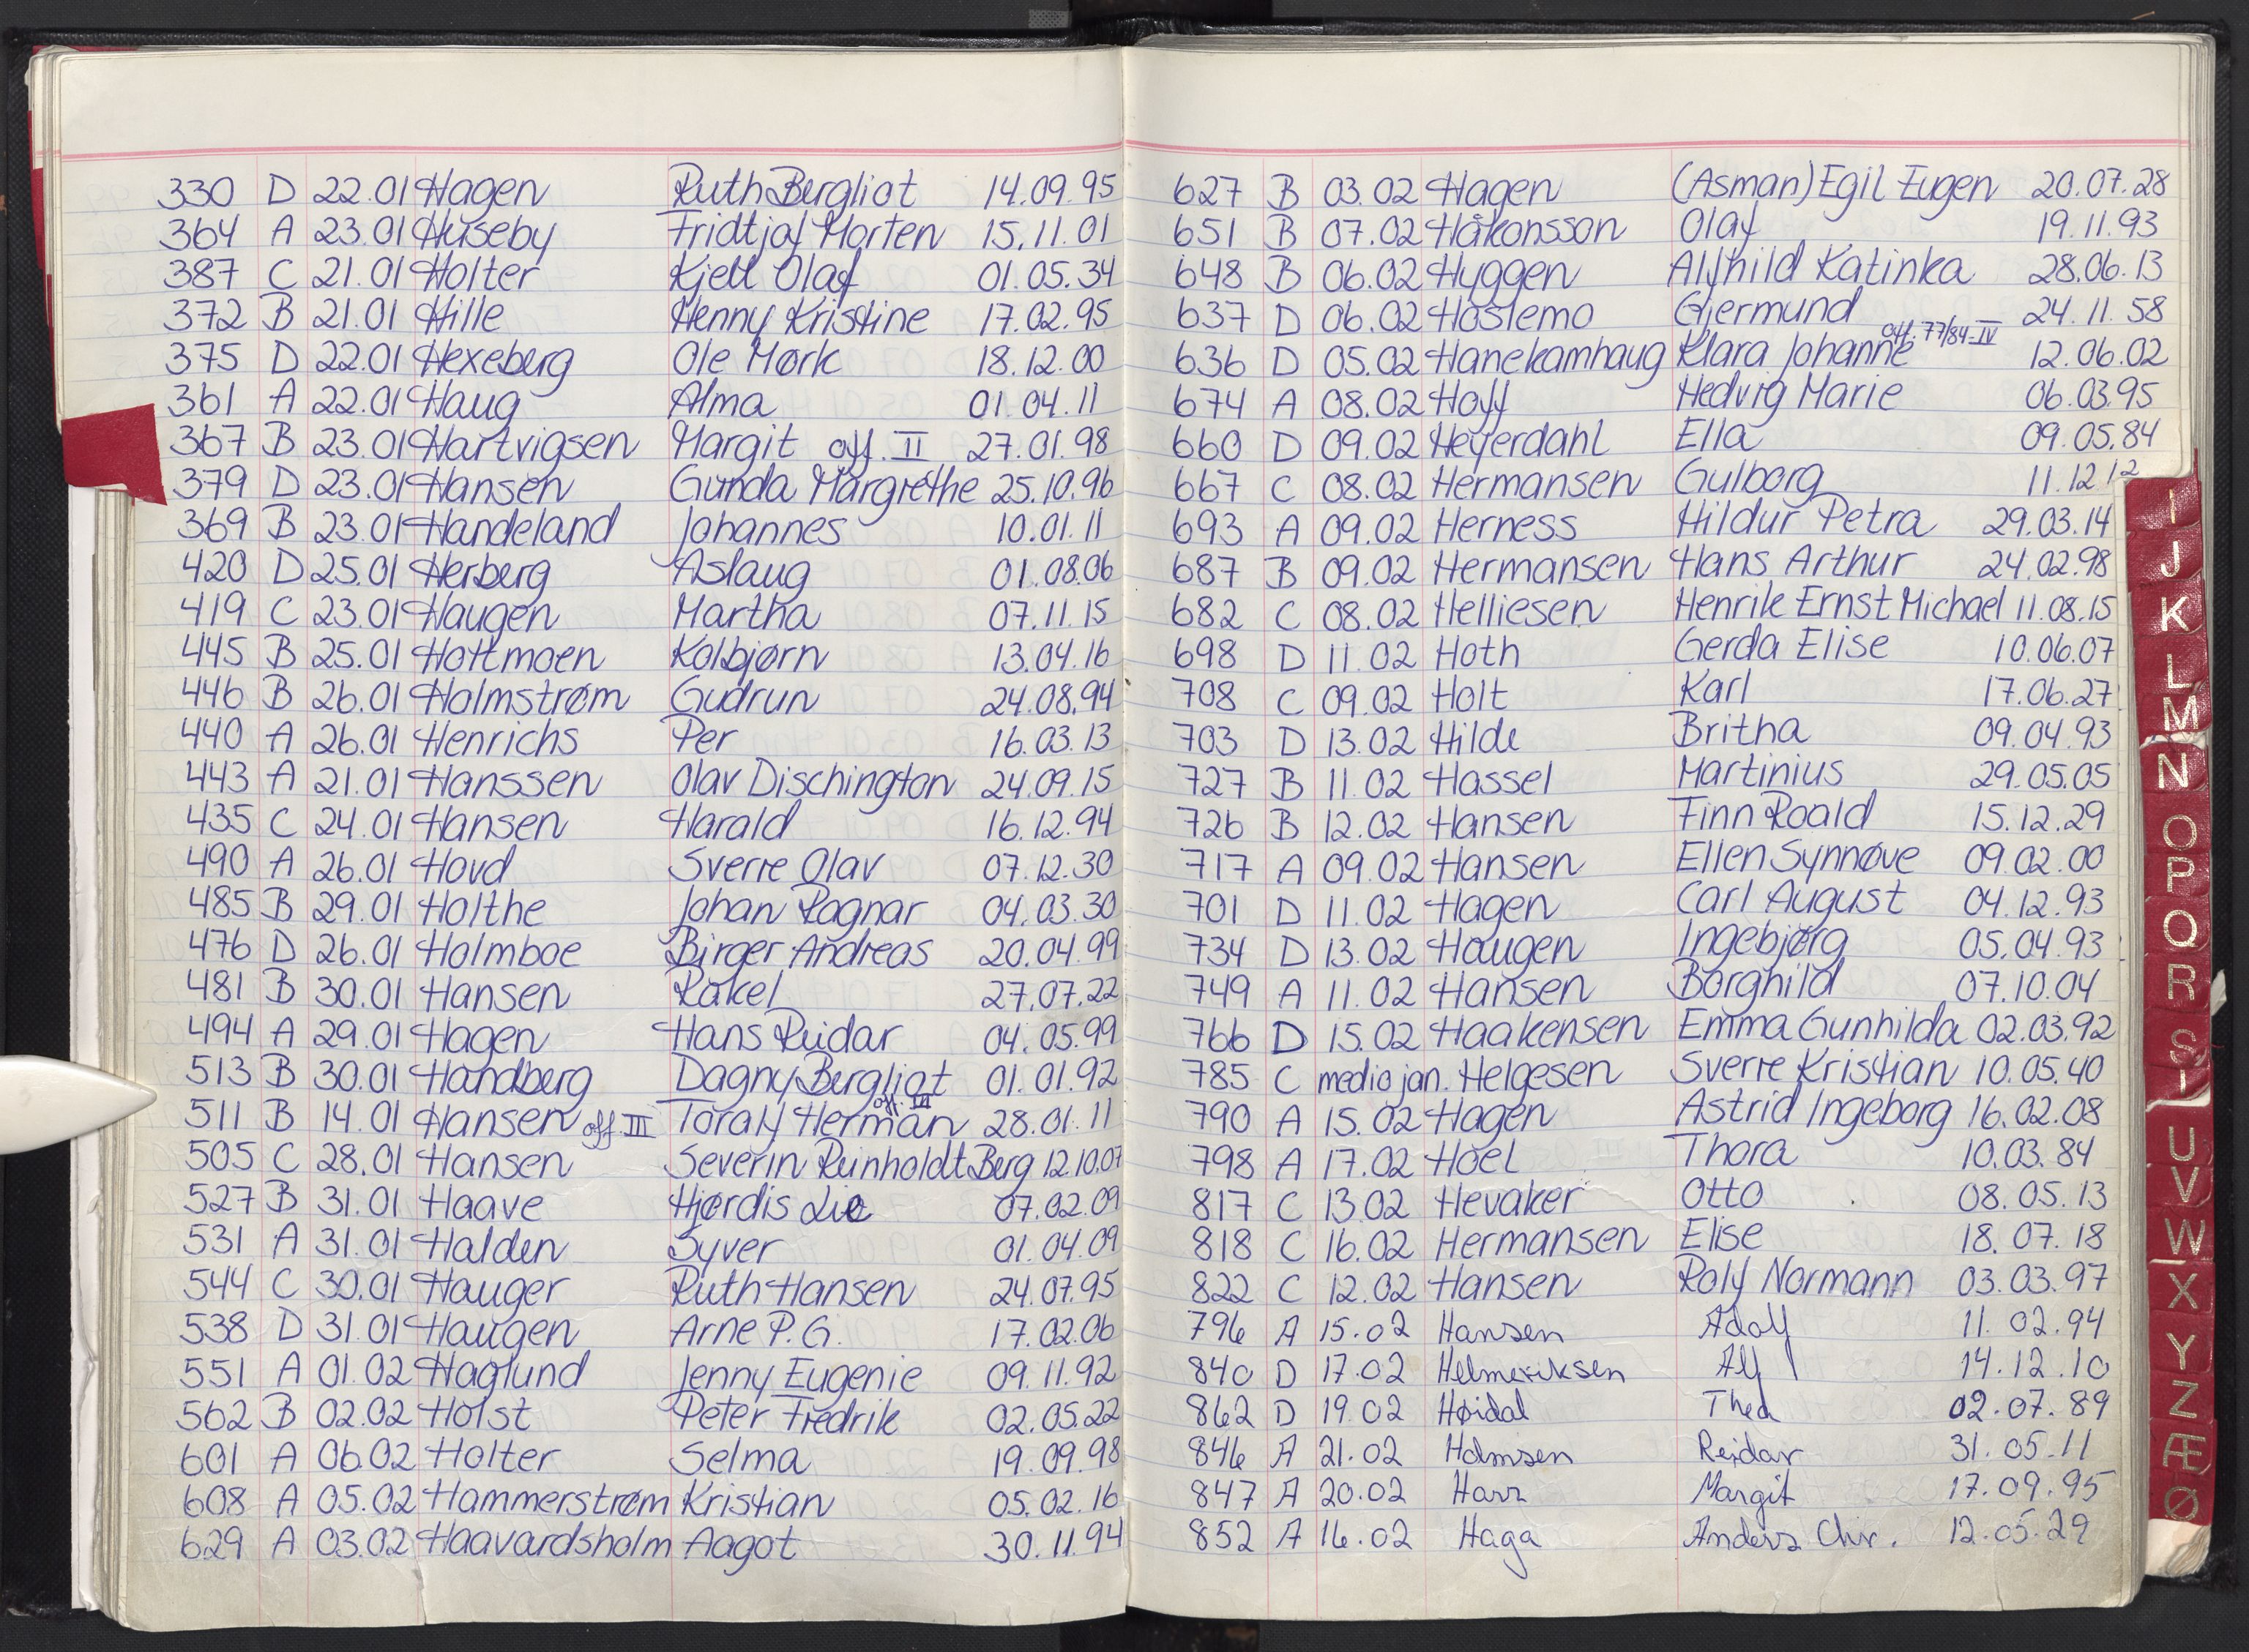 330 D 22.01 Hagen Ruth Bergliot 14.09.95
364 A 23.01 Huseby Fridtjof Morten 15.11.01
387 C 21.01 Holter Kjell Olaf 01.05.34
372 B 21.01 Hille Henny Kristine 17.02.95
375 D 22.01 Hexeberg Ole Mørk 18.12.00
361 A 22.01 Haug Alma 01.04.11
367 B 23.01 Hartvigsen Margit off. II 27.01.98
379 D 23.01 Hansen Gunda Margrethe 25.10.96
369 B 23.01 Handeland Johannes 10.01.11
420 D 25.01 Herberg Aslaug 01.08.06
419 C 23.01 Haugen Martha 07.11.15
445 B 25.01 Holtmoen Kolbjørn 13.04.16
446 B 26.01 Holmstrøm Gudrun 24.08.94
440 A 26.01 Henrichs Per 16.03.13
443 A 21.01 Hanssen Olav Dischington 24.09.15
435 C 24.01 Hansen Harald 16.12.94
490 A 26.01 Hovd Sverre Olav 07.12.30
485 B 29.01 Holthe Johan Ragnar 04.03.30
476 D 26.01 Holmboe Birger Andreas 20.04.99
481 B 30.01 Hansen Rakel 27.07.22
494 A 29.01 Hagen Hans Reidar 04.05.99
513 B 30.01 Handberg Dagny Bergliot 01.01.92
511 B 14.01 Hansen off III Toralf Herman off. III 28.01.11
505 C 28.01 Hansen Severin Reinholdt Berg 12.10.07
527 B 31.01 Haave Hjørdis Lie 07.02.09
531 A 31.01 Halden Syver 01.04.09
544 C 30.01 Hauger Ruth Hansen 24.07.95
538 D 31.01 Haugen Arne P.G. 17.02.06
551 A 01.02 Haglund Jenny Eugenie 09.11.92
562 B 02.02 Holst Peter Fredrik 02.05.22
601 A 06.02 Holter Selma 19.09.98
608 A 05.02 Hammerstrøm Kristian 05.02.16
629 A 03.02 Haavardsholm Aagot 30.11.94
627 B 03.02 Hagen (Asman) Egil Eugen 20.07.28
651 B 07.02 Håkonsson Olaf 19.11.93
648 B 06.02 Hyggen Alfhild Katinka 28.06.13
637 D 06.02 Hoslemo Gjermund 24.11.58
636 D 05.02 Hanekamhaug Klara Johanne off. 77/84-IV 12.06.02
674 A 08.02 Hoff Hedvig Marie 06.03.95
660 D 09.02 Heyerdahl Ella 09.05.84
667 C 08.02 Hermansen Gulborg 11.12.12
693 A 09.02 Herness Hildur Petra 29.03.14
687 B 09.02 Hermansen Hans Arthur 24.02.98
682 C 08.02 Helliesen Henrik Ernst Michael 11.08.15
698 D 11.02 Hoth Gerda Elise 10.06.07
708 C 09.02 Holt Karl 17.06.27
703 D 13.02 Hilde Britha 09.04.93
727 B 11.02 Hassel Martinius 29.05.05
726 B 12.02 Hansen Finn Roald 15.12.29
717 A 09.02 Hansen Ellen Synnøve 09.02.00
701 D 11.02 Hagen Carl August 04.12.93
734 D 13.02 Haugen Ingebjørg 05.04.93
749 A 11.02 Hansen Borghild 07.10.04
766 D 15.02 Haakensen Emma Gunhilda 02.03.92
785 C medio jan. Helgesen Sverre Kristian 10.05.40
790 A 15.02 Hagen Astrid Ingeborg 16.02.08
798 A 17.02 Hoel Thora 10.03.84
817 C 13.02 Hevaker Otto 08.05.13
818 C 16.02 Hermansen Elise 18.07.18
822 C 12.02 Hansen Rolf Normann 03.03.97
796 A 15.02 Hansen Adolf 11.02.94
840 D 17.02 Helmeriksen Alf 14.12.10
862 D 19.02 Høidal Thea 02.07.89
846 A 21.02 Holmsen Reidar 31.05.11
847 A 20.02 Harr Margit 17.09.95
852 A 16.02 Haga Anders Chr. 12.05.29
I
J
K
L
M
N
O
P
Q
R
S
U
V
W
X
Y
Z
Æ
Ø